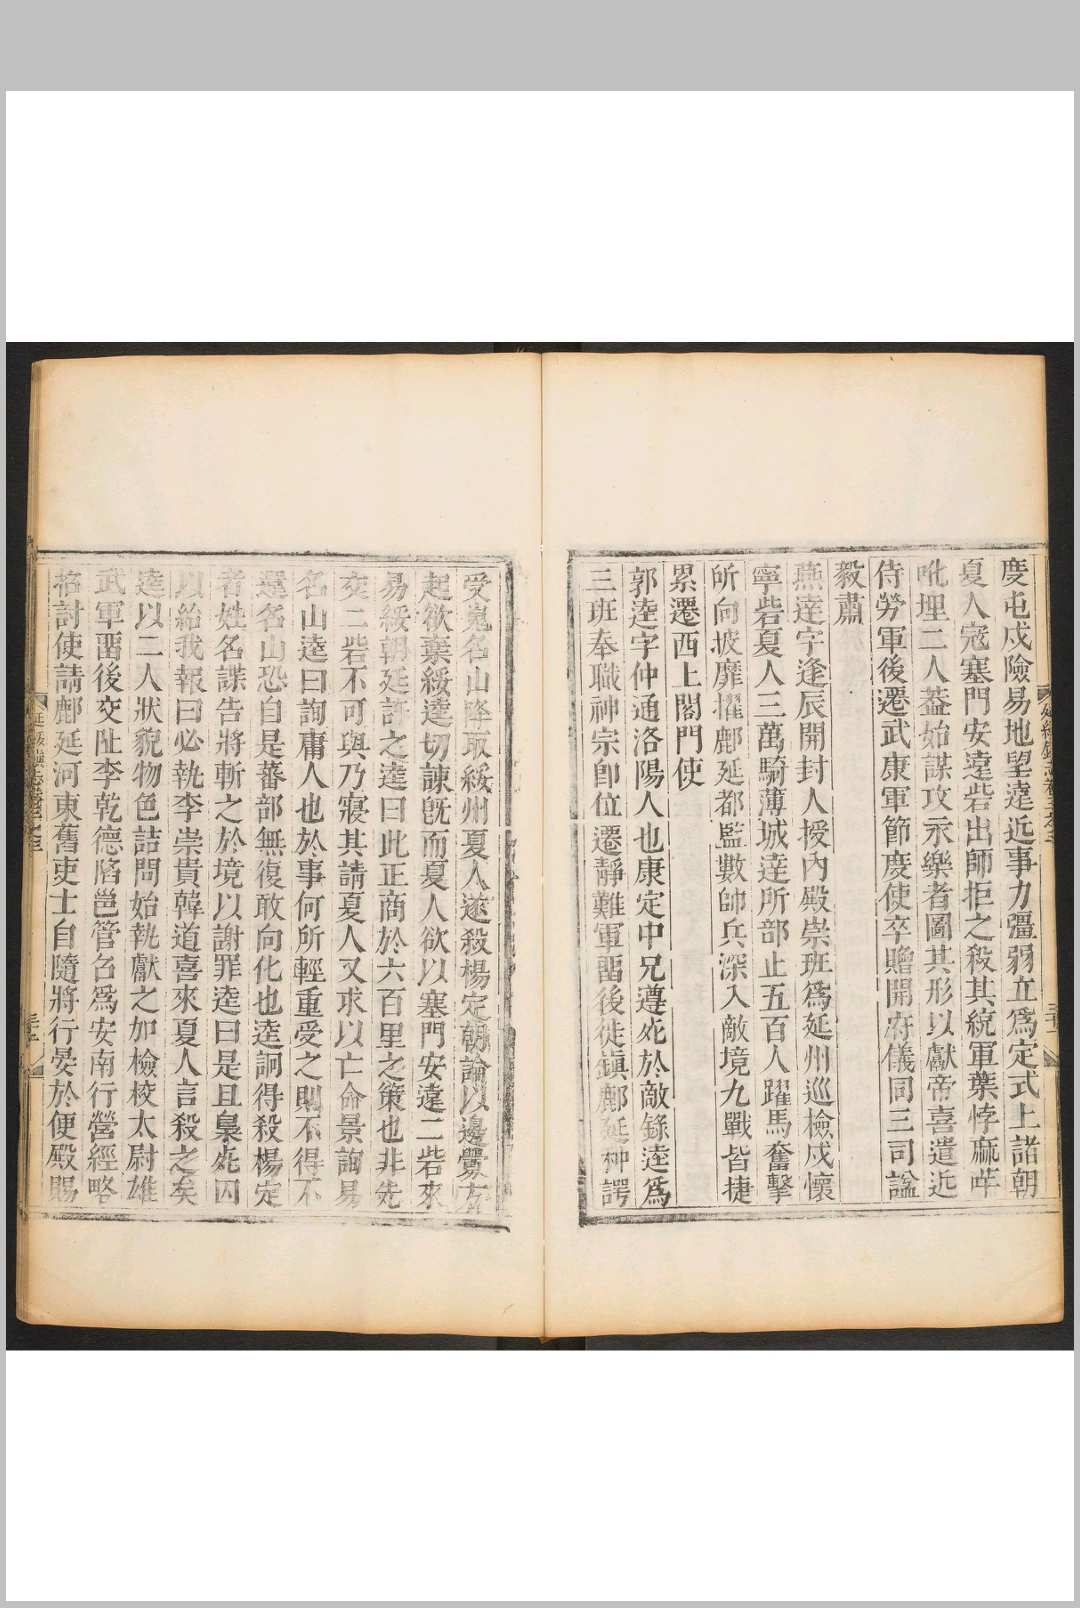 慶屯戍險易地望遠近事力彊弱立爲定式上諸朝
夏人寇塞門安遠砦出師拒之殺其統軍葉悖麻咩
吪埋二人葢始謀攻永樂者圖其形以獻帝喜遣近
侍勞軍後遷武康軍節度使卒贈開府儀同三司諡
毅肅
燕達字逢辰開封人授內殿崇班爲延州巡檢戍懷
寧砦夏人三萬騎薄城達所部止五百人躍馬奮擊
所向披靡擢鄜延都監數帥兵深入敵境九戰皆捷
累遷西上閤門使
郭逵字仲通洛陽人也康定中兄遵死於敵錄逵爲
三班奉職神宗卽位遷靜難軍畱後徙鎮鄜延种諤
受嵬名山降取綏州夏人遂殺楊定朝論以邊釁方
起欲棄綏逵切諫旣而夏人欲以塞門安遠二砦來
易綏朝廷許之逵曰此正商於六百里之策也非先
交二砦不可與乃寢其請夏人又求以亡命景詢易
名山逵曰詢庸人也於事何所輕重受之則不得不
還名山恐自是蕃部無復敢向化也逵詗得殺楊定
者姓名諜告將斬之於境以謝罪逵曰是且梟死囚
以紿我報曰必執李崇貴韓道喜來夏人言殺之矣
逵以二人狀貌物色詰問始執獻之加檢校太尉雄
武軍畱後交阯李乾德陷邕管召爲安南行營經略
招討使請鄜延河東舊吏士自隨將行宴於便殿賜